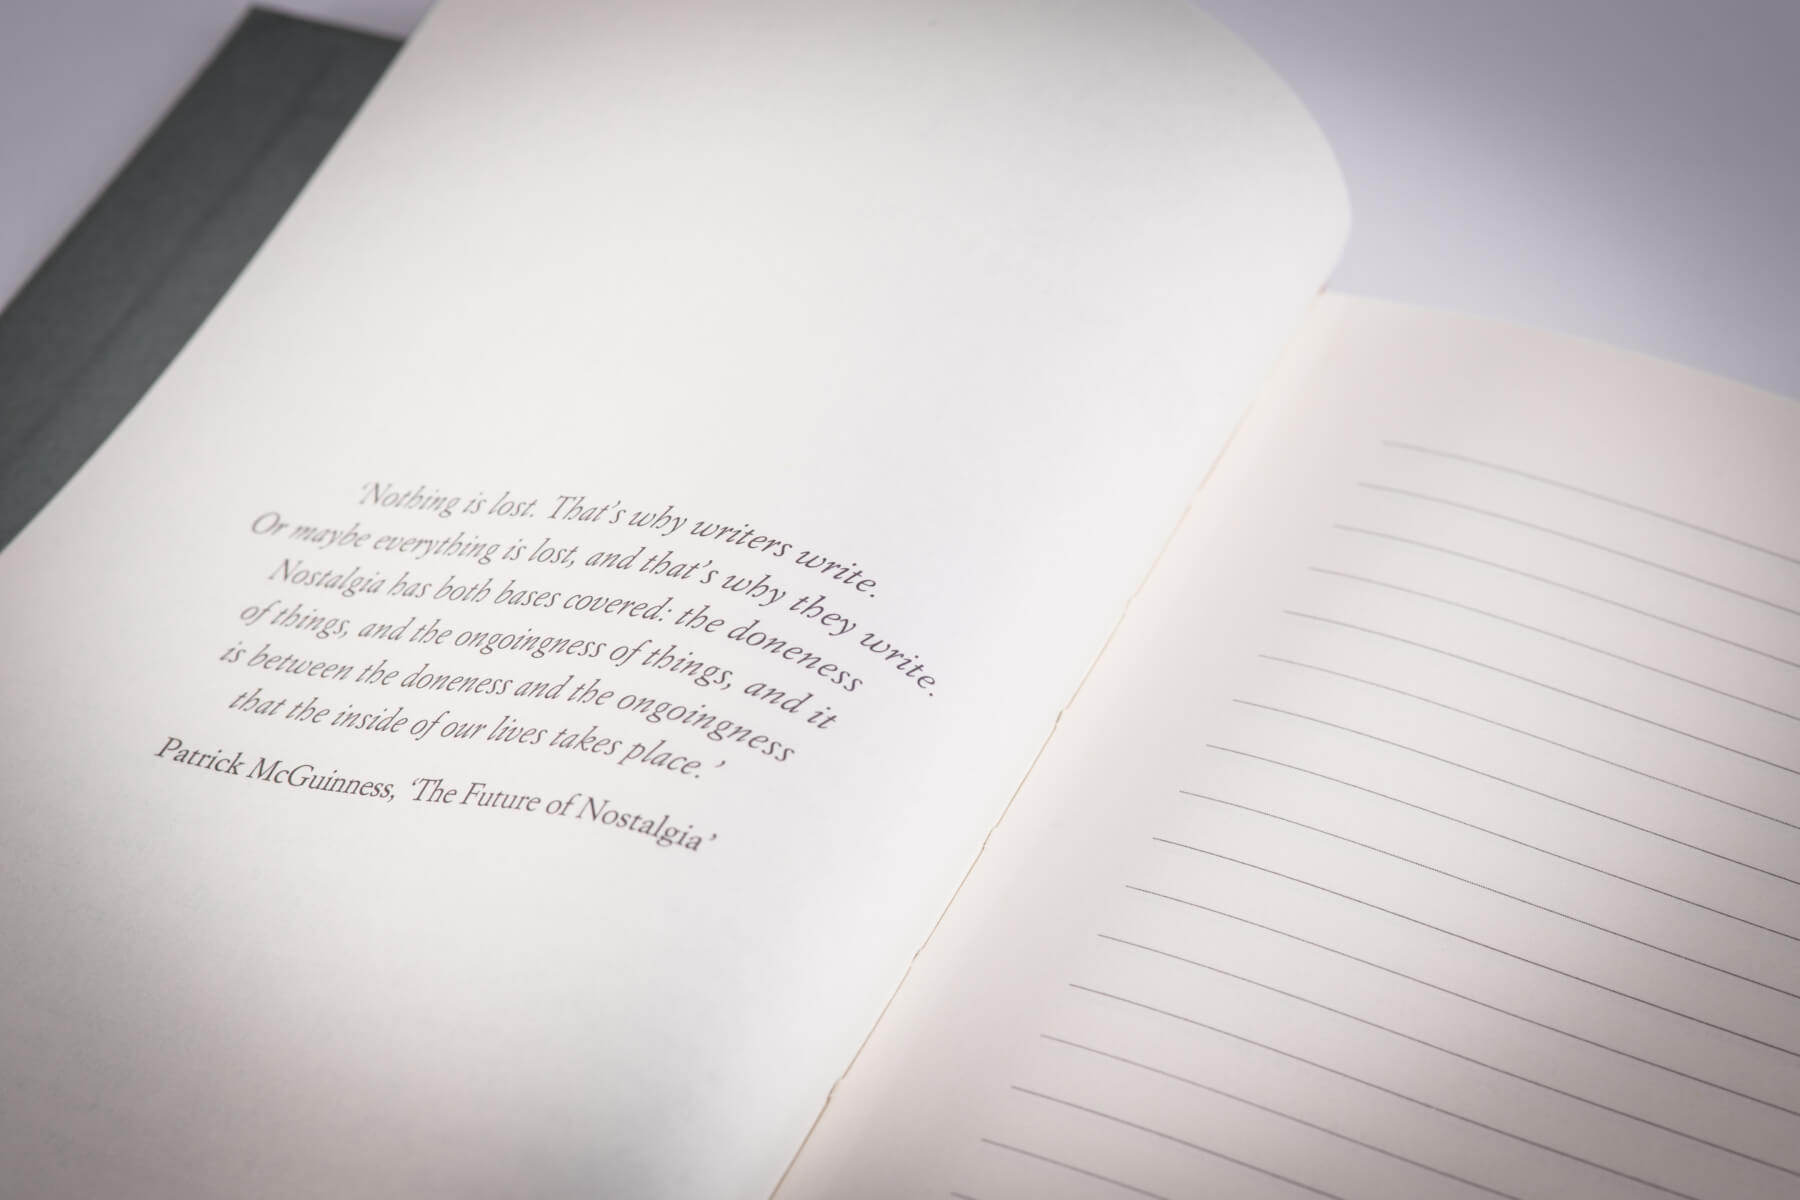 ‘Nothing is lost. That’s why writers write.
Or maybe everything is lost, and that’s why they write.
Nostalgia has both bases covered: the doneness
of things, and the ongoingness of things, and it
is between the doneness and the ongoingness
that the inside of our lives takes place.’
Patrick McGuinness, ‘The Future of Nostalgia’